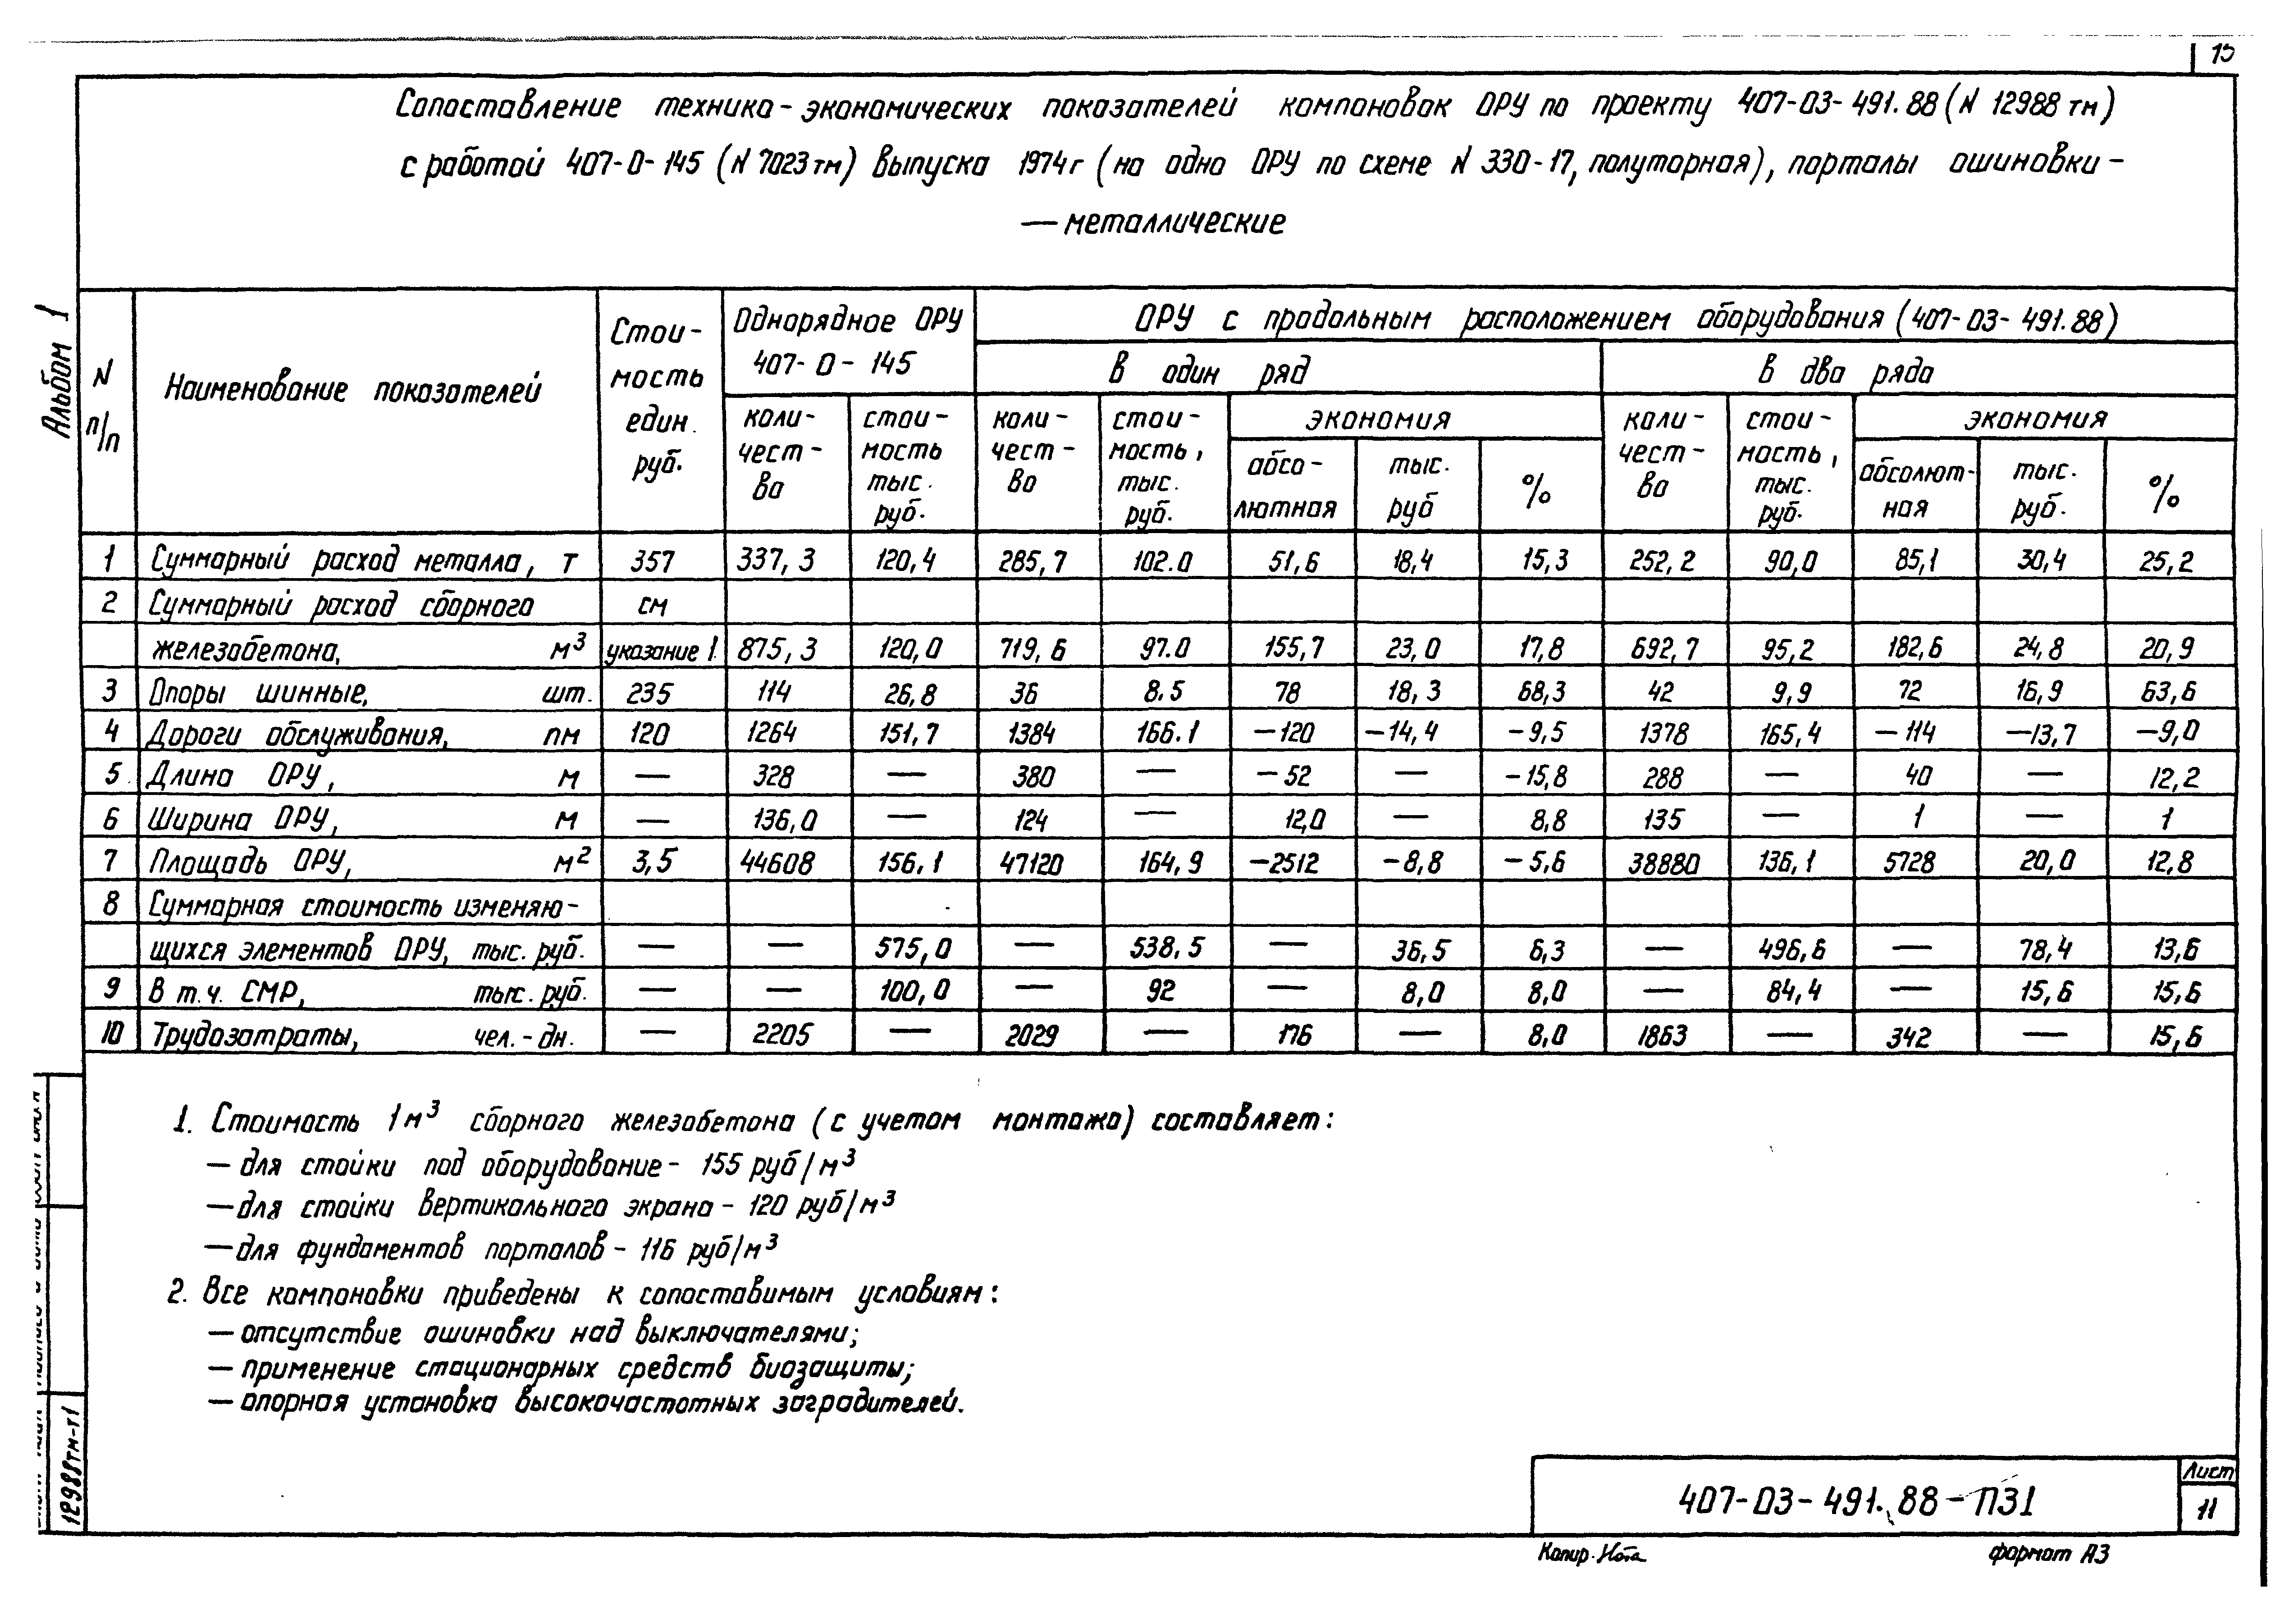 15
Сопоставление технико-экономических показателей компоновок ОРУ по проекту 407-03-491.88 (N 12988 тм)
с работой 407-0-145 (N 7023 тм) выпуска 1974 г (на одно ОРУ по схеме N 330-17, полуторная), порталы ошиновки-
— металлические
Альбом 1
N п/п
Наименование показателей
Стоимость един. руб.
Однорядное ОРУ 407-0-145
ОРУ с продольным расположением оборудования (407-03-491.88)
В один ряд
В два ряда
коли-чест-во
стои-мость тыс. руб.
коли-чест-во
стои-мость, тыс. руб.
экономия
абсо-лютная
тыс. руб
%
коли-чест-во
стои-мость, тыс. руб.
экономия
абсолют-ная
тыс. руб.
%
1 Суммарный расход металла, т 357 337,3 120,4 285,7 102.0 51,6 18,4 15,3 252,2 90,0 85,1 30,4 25,2
2 Суммарный расход сборного см
железобетона, м³ указание 1. 875,3 120,0 719,6 97.0 155,7 23,0 17,8 692,7 95,2 182,6 24,8 20,9
3 Опоры шинные, шт. 235 114 26,8 36 8.5 78 18,3 68,3 42 9,9 72 16,9 63,6
4 Дороги обслуживания, пм 120 1264 151,7 1384 166.1 —120 —14,4 -9,5 1378 165,4 —114 —13,7 —9,0
5 Длина ОРУ, м — 328 — 380 — -52 — -15,8 288 — 40 — 12,2
6 Ширина ОРУ, м — 136,0 — 124 — 12,0 — 8,8 135 — 1 — 1
7 Площадь ОРУ, м² 3,5 44608 156,1 47120 164,9 —2512 -8,8 -5,6 38880 136,1 5728 20,0 12,8
8 Суммарная стоимость изменяю-
щихся элементов ОРУ, тыс. руб. — — 575,0 — 538,5 — 36,5 6,3 — 496,6 — 78,4 13,6
9 В т.ч. СМР, тыс. руб. — — 100,0 — 92 — 8,0 8,0 — 84,4 — 15,6 15,6
10 Трудозатраты, чел.-дн. — 2205 — 2029 — 176 — 8,0 1863 — 342 — 15,6
1. Стоимость 1 м³ сборного железобетона (с учетом монтажа) составляет:
— для стойки под оборудование - 155 руб/м³
— для стойки вертикального экрана - 120 руб/м³
— для фундаментов порталов - 116 руб/м³
2. Все компоновки приведены к сопоставимым условиям:
— отсутствие ошиновки над выключателями;
— применение стационарных средств биозащиты;
— опорная установка высокочастотных заградителей.
12988тм-т1
407-03-491.88-ПЗ1
Лист
11
Копир.
формат А3